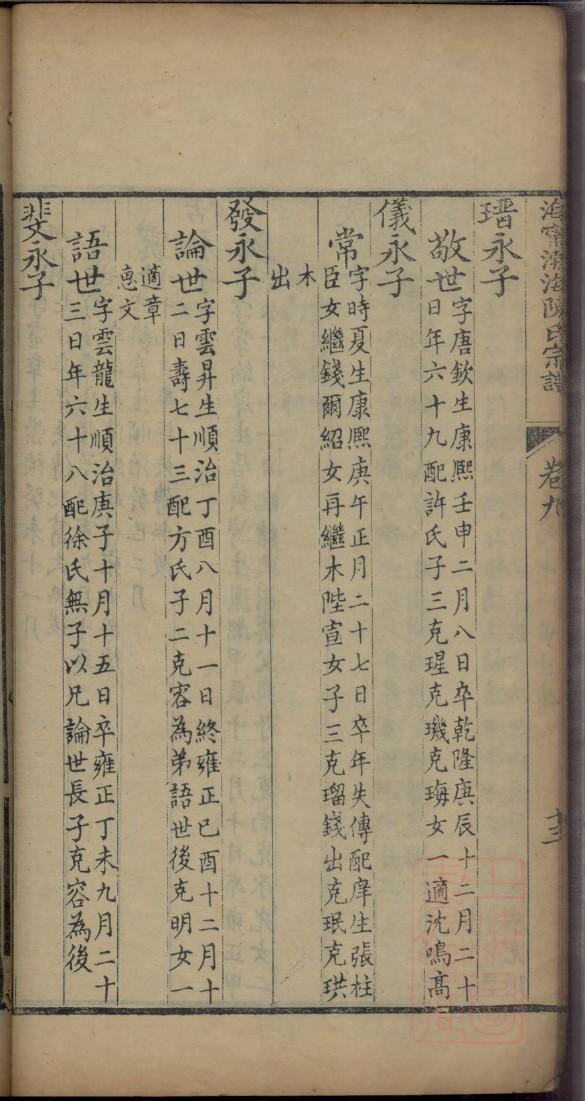 海寧渤海陳氏宗譜
卷九
十二
瑨永子
敬世字唐欽生康熙壬申二月八日卒乾隆庚辰十二月二十
日年六十九配許氏子三克瑆克璣克珻女一適沈鳴高
儀永子
常字時夏生康熙庚午正月二十七日卒年失傳配庠生張柱
臣女繼錢爾紹女再繼木陛宣女子三克瑠錢出克珉克珙
木
出
發永子
論世字雲昇生順治丁酉八月十一日終雍正己酉十二月十
二日壽七十三配方氏子二克容為弟語世後克明女一
適章
惠文
語世字雲龍生順治庚子十月十五日卒雍正丁未九月二十
三日年六十八配徐氏無子以兄論世長子克容為後
斐永子